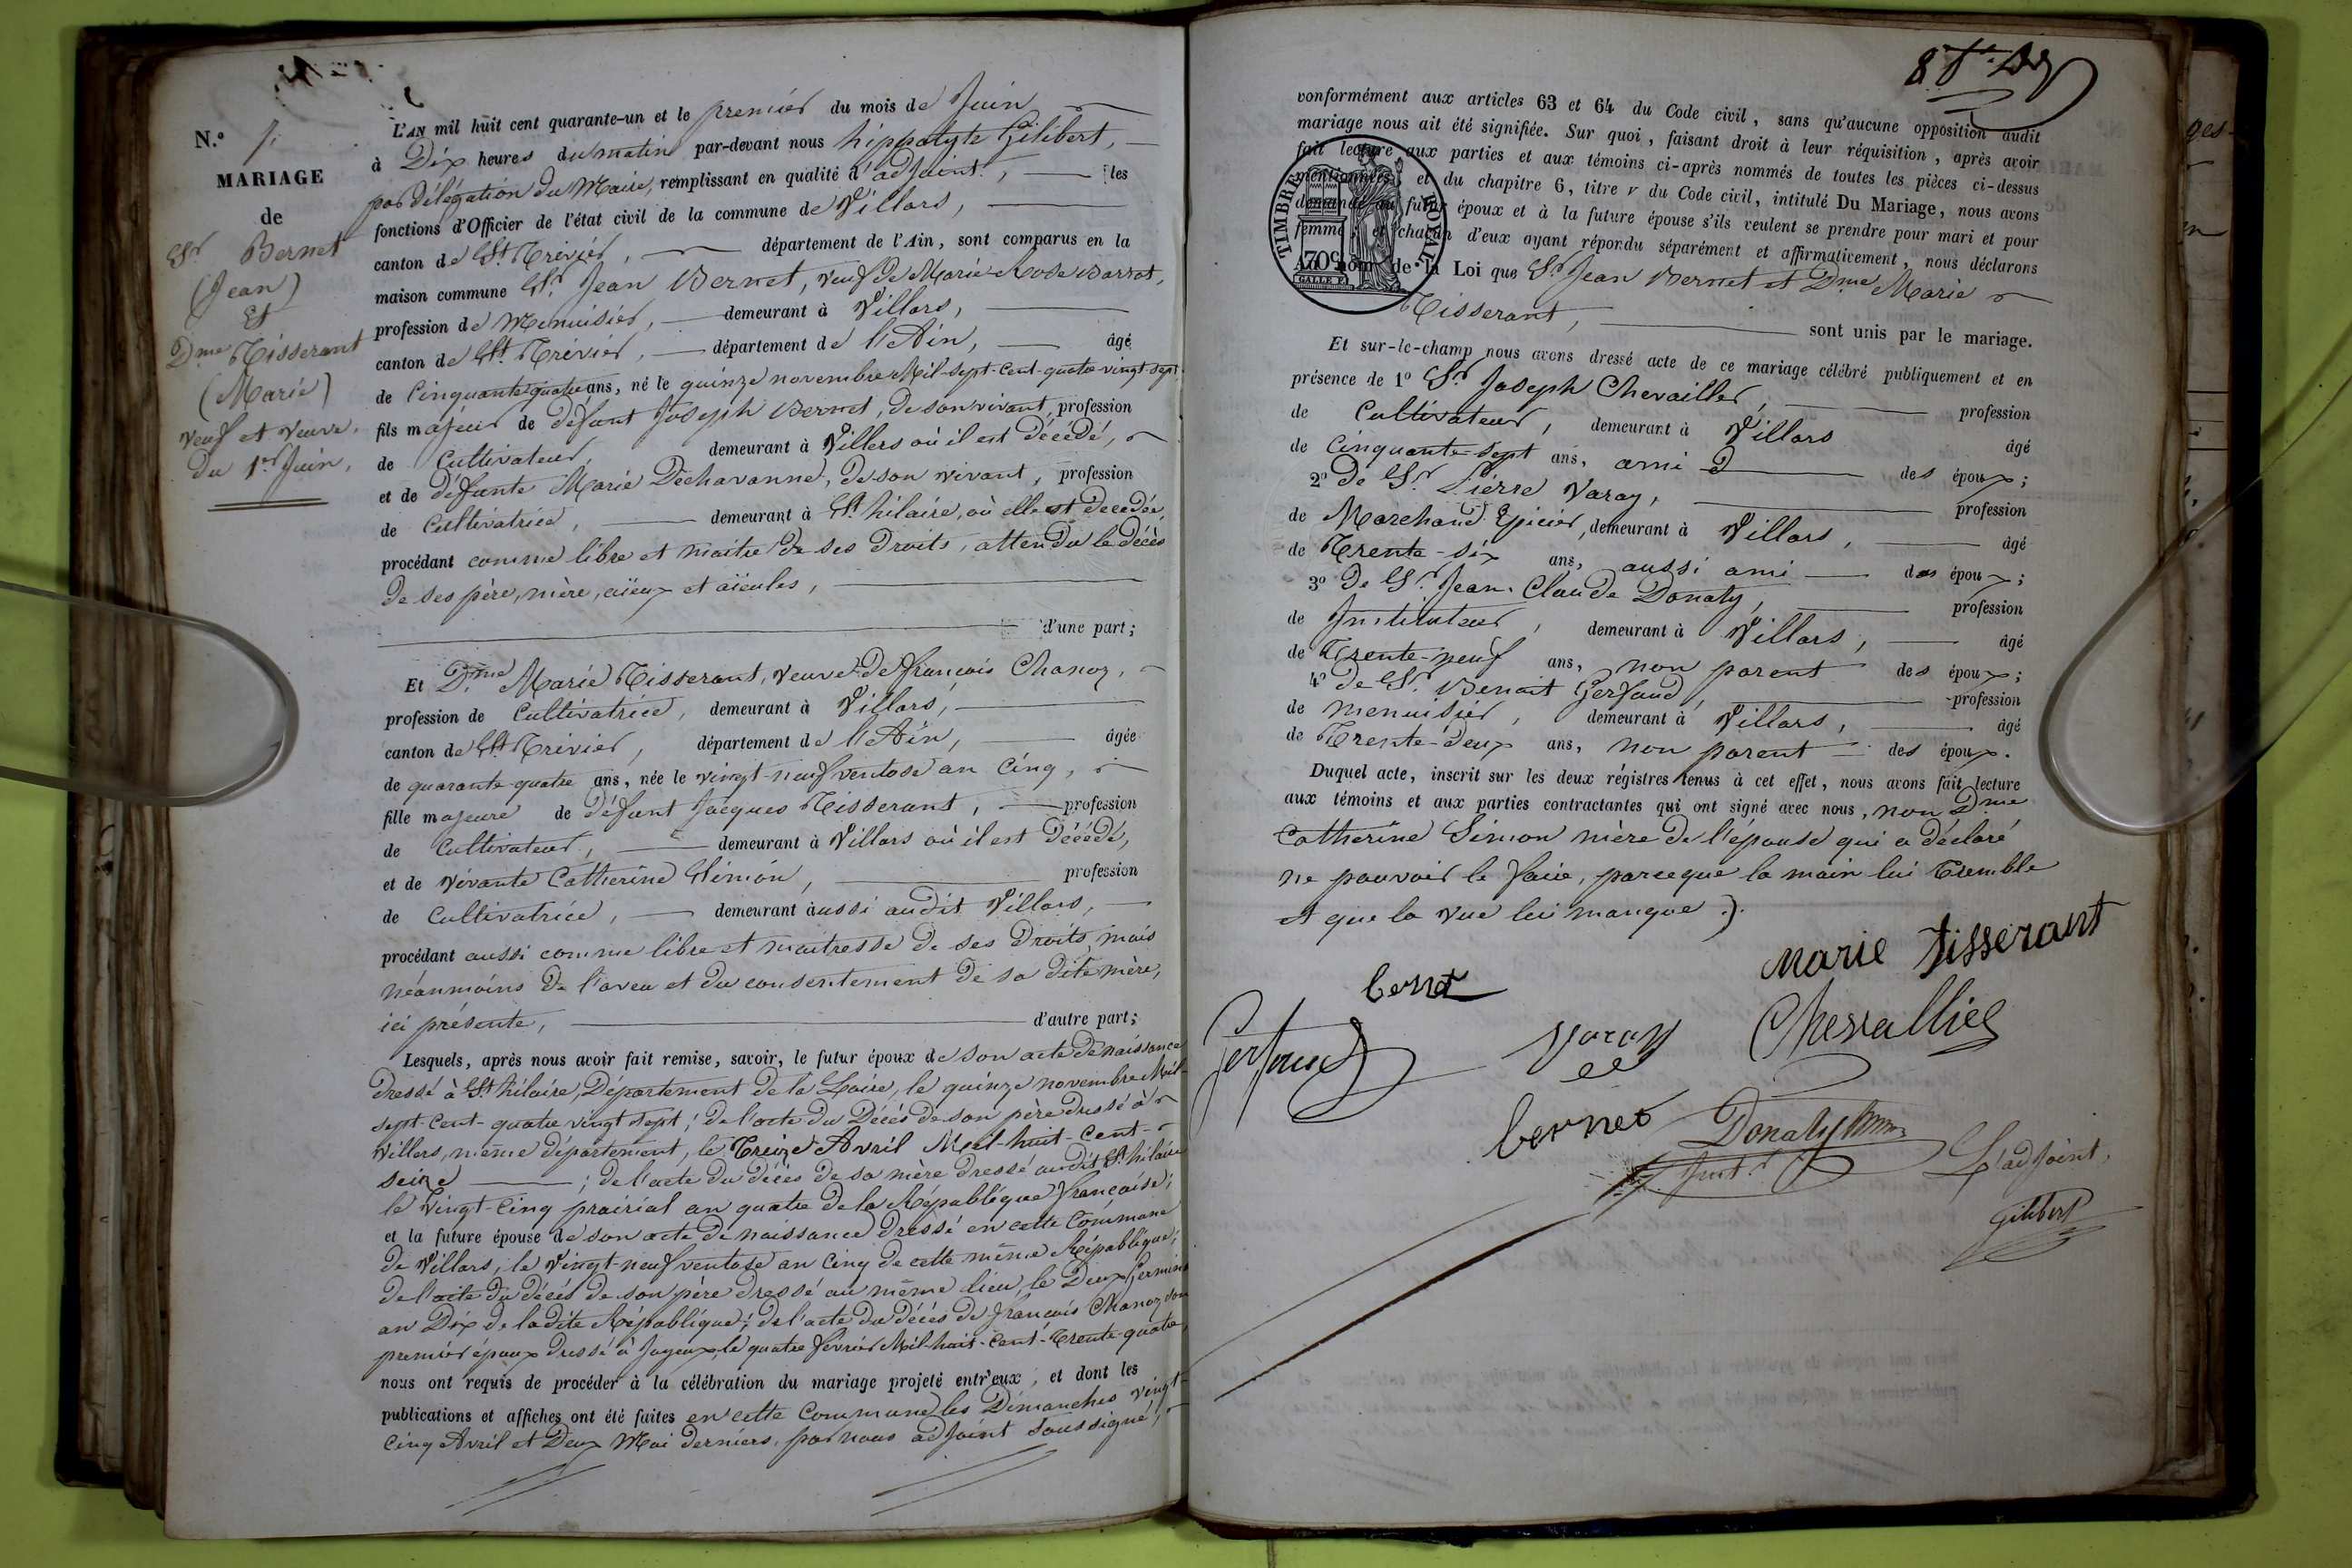 N.º 7.
MARIAGE
de
Sr Bernet
(Jean)
Et
Dme Tisserant
(Marie)
veuf et veuve.
Du 1er Juin,
L'AN mil huit cent quarante-un et le premier du mois de Juin
à Dix heures du matin par-devant nous hippolyte Gilibert,
par délégation du Maire, remplissant en qualité d'adjoint, les
fonctions d'Officier de l'état civil de la commune de Villars,
canton de St Trévier, département de l'Ain, sont comparus en la
maison commune Sr. Jean Bernet, veuf de Marie Rose Barrot,
profession de Menuisier, demeurant à Villars,
canton de St. Trévier, département de l'Ain, âgé
de Cinquante quatre ans, né le quinze novembre Mil-sept-cent-quatre-vingt-sept,
fils majeur de défunt Joseph Bernet, de son vivant, profession
de Cultivateur, demeurant à Villers où il est décédé,
et de défunte Marie Dechavanne, de son vivant, profession
de Cultivatrice, demeurant à St. hilaire, où elle est décédée,
procédant comme libre et maître de ses droits, attendu le décès
de ses père, mère, aïeux et aïeules,
d'une part;
Et Dme Marie Tisserant, veuve de françois Chanoz,
profession de Cultivatrice, demeurant à Villars,
canton de St Trévier, département de l'Ain, âgée
de quarante-quatre ans, née le vingt-neuf ventose an Cinq,
fille majeure de défunt Jacques Tisserant, profession
de Cultivateur, demeurant à Villars où il est décédé,
et de vivante Catherine Simon, profession
de Cultivatrice, demeurant aussi audit Villars,
procédant aussi comme libre et maitresse de ses droits, mais
néanmoins de l'aveu et du consentement de sa dite mère,
ici présente, d'autre part;
Lesquels, après nous avoir fait remise, savoir, le futur époux de son acte de naissance
dressé à St. hilaire, Département de la Loire, le quinze novembre Mil-
sept-cent-quatre vingt sept; de l'acte du Décès de son père dressé à
Villers, même département, le Treize Avril Mil-huit-Cent-
seize ; de l'acte du décès de sa mère dressé audit St. hilaire
le Vingt-Cinq prairial an quatre de la République française;
et la future épouse de son acte de naissance dressé en cette Commune
de Villars, le Vingt-neuf ventose an Cinq de cette même République;
de l'acte du décès de son père dressé au même lieu, le Deux Germinal
an Dix de ladite République; de l'acte du décès de françois Chanoz son
premier époux dressé à Joyeux, le quatre février Mil-huit-Cent-Trente-quatre,
nous ont requis de procéder à la célébration du mariage projeté entr'eux, et dont les
publications et affiches ont été faites en cette Commune les Dimanches vingt-
Cinq Avril et Deux Mai derniers, par nous adjoint soussigné,
conformément aux articles 63 et 64 du Code civil, sans qu'aucune opposition audit
mariage nous ait été signifiée. Sur quoi, faisant droit à leur réquisition, après avoir
fait lecture aux parties et aux témoins ci-après nommés de toutes les pièces ci-dessus
mentionnées, et du chapitre 6, titre v du Code civil, intitulé Du Mariage, nous avons
demandé au futur époux et à la future épouse s'ils veulent se prendre pour mari et pour
femme; et chacun d'eux ayant répondu séparément et affirmativement, nous déclarons
Au nom de la Loi que Sr. Jean Bernet et Dme Marie
Tisserant, sont unis par le mariage.
TIMBRE ROYAL
70c
Et sur-le-champ nous avons dressé acte de ce mariage célébré publiquement et en
présence de 1º Sr. Joseph Chevallier, profession
de Cultivateur, demeurant à Villars âgé
de Cinquante-sept ans, ami des époux;
2º de Sr. Pierre Varay, profession
de Marchand Epicier, demeurant à Villars, âgé
de Trente-six ans, aussi ami des époux;
3º de Sr. Jean-Claude Donaty, profession
de Instituteur, demeurant à Villars, âgé
de Trente-neuf ans, non parent des époux;
4º de Sr. Benoit Gerfaud, profession
de menuisier, demeurant à Villars, âgé
de Trente-deux ans, non parent des époux.
Duquel acte, inscrit sur les deux régistres tenus à cet effet, nous avons fait lecture
aux témoins et aux parties contractantes qui ont signé avec nous, non Dme
Catherine Simon mère de l'épouse qui a déclaré
ne pouvoir le faire, parceque la main lui Tremble
et que la vue lui manque.
marie tisserant
bernet
Gerfaud
Varay
Chevallier
bernet
Donaty
Inst.r
L'adjoint,
Gilibert